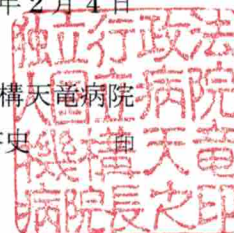 年2月4日
構天竜病院
史 印
独立行政法
人国立病院
機構天竜
病院長之印